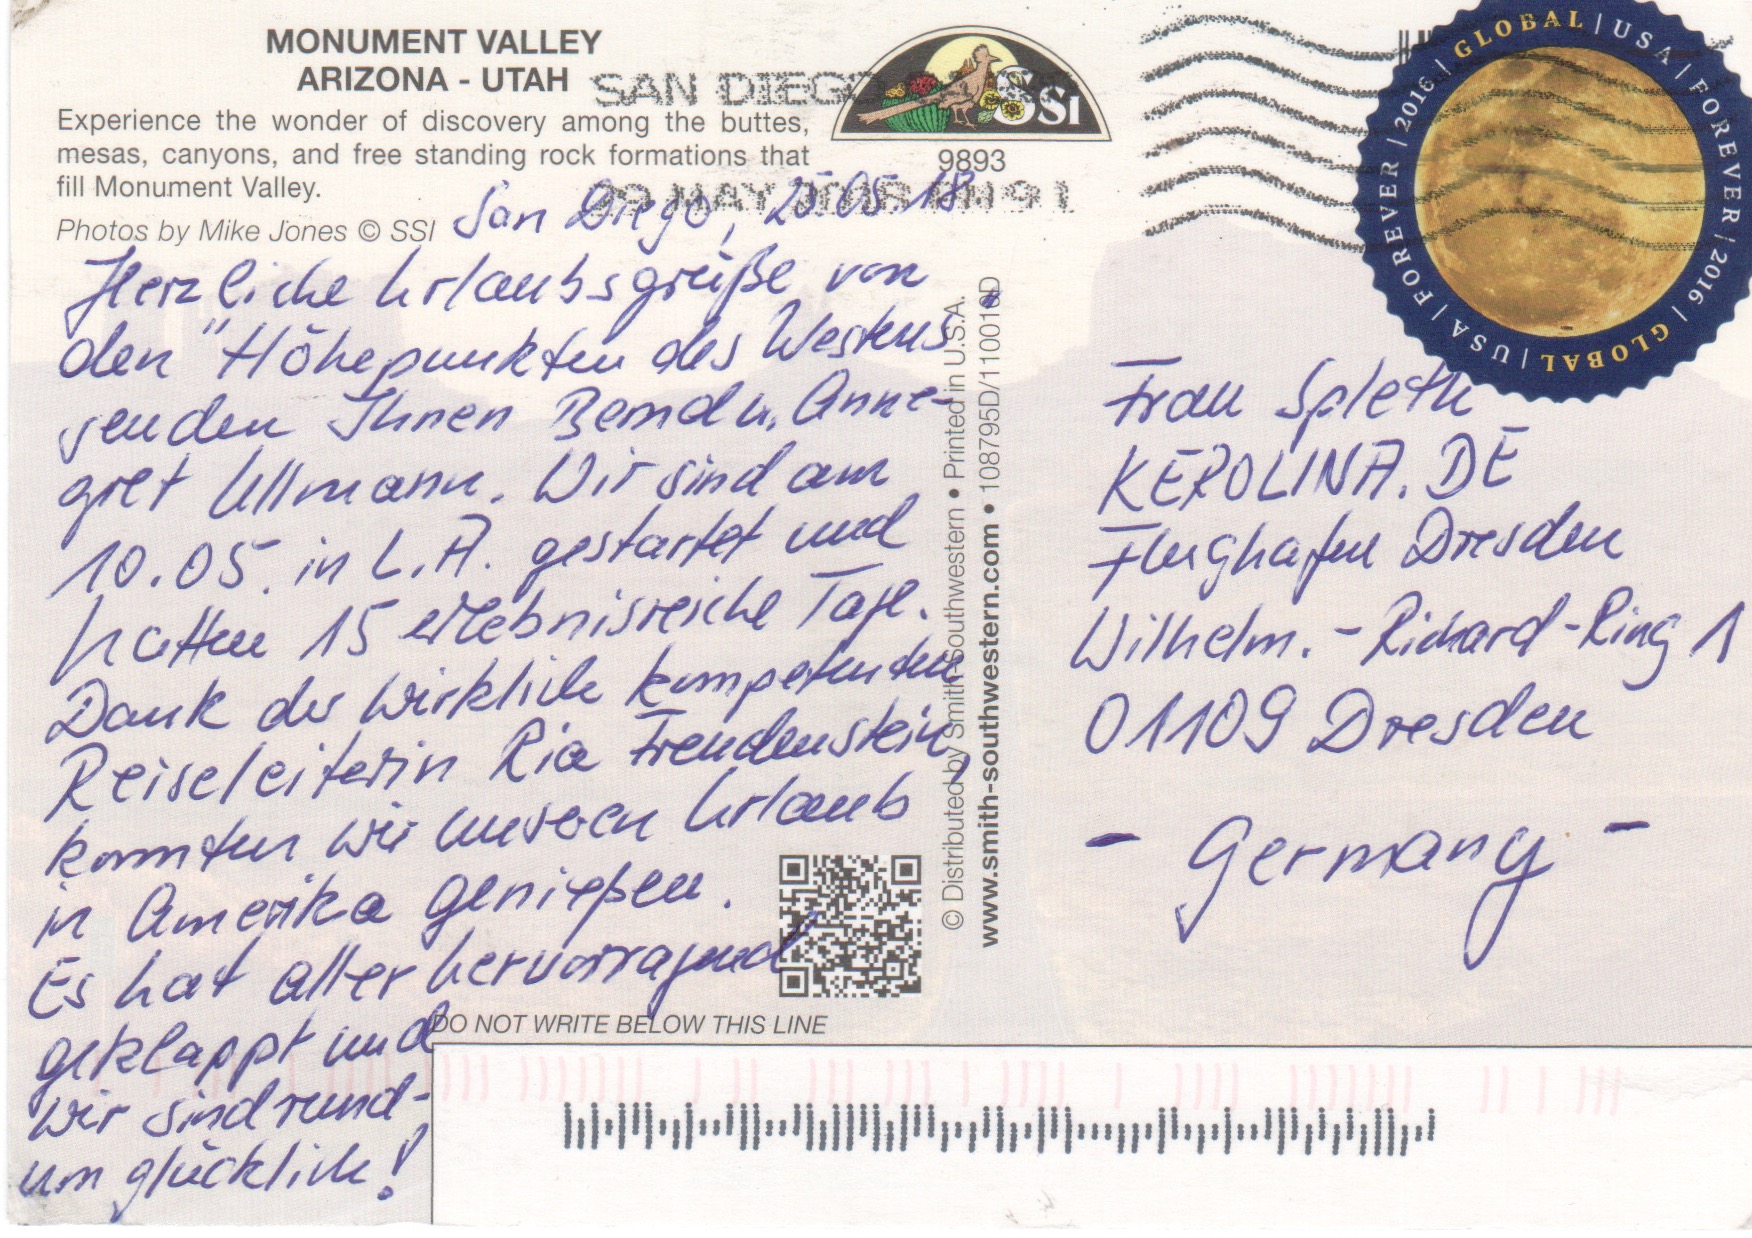 MONUMENT VALLEY
ARIZONA - UTAH
Experience the wonder of discovery among the buttes,
mesas, canyons, and free standing rock formations that
fill Monument Valley.
Photos by Mike Jones © SSI
SSI
9893
SAN DIEGO
MAY
San Diego, 25.05.18
Herzliche Urlaubsgrüße von
den "Höhepunkten des Westens
senden Ihnen Bernd u. Anne-
gret Ullmann. Wir sind am
10.05. in L.A. gestartet und
hatten 15 erlebnisreiche Tage.
Dank der wirklich kompetenten
Reiseleiterin Ria Freudenstein,
konnten wir unseren Urlaub
in Amerika genießen.
Es hat aller hervorragend
geklappt und
wir sind rund-
um glücklich!
DO NOT WRITE BELOW THIS LINE
© Distributed by Smith-Southwestern • Printed in U.S.A.
www.smith-southwestern.com • 108795D/110016D
GLOBAL | USA | FOREVER | 2016 | GLOBAL | USA | FOREVER | 2016 |
Frau Spleth
KEROLINA.DE
Flughafen Dresden
Wilhelm.-Richard-Ring 1
01109 Dresden
- Germany -